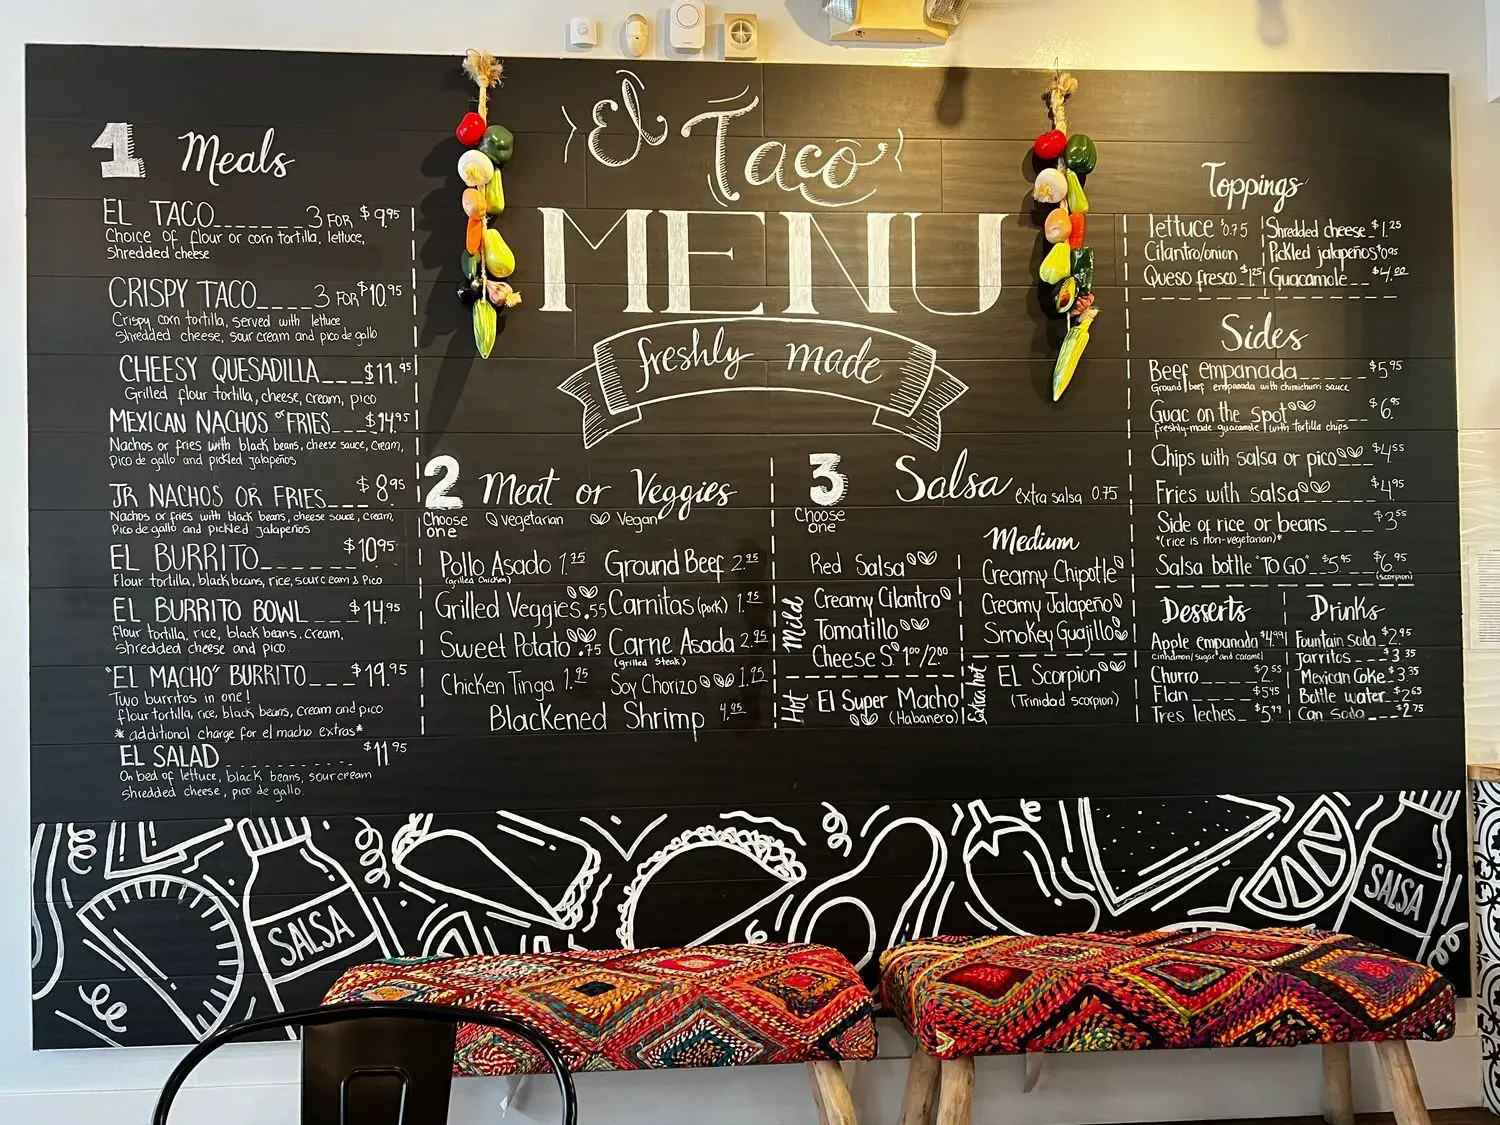 El Taco
MENU
freshly made
1 Meals
EL TACO_______3 FOR $9.95
Choice of flour or corn tortilla, lettuce,
Shredded cheese
CRISPY TACO____3 FOR $10.95
Crispy corn tortilla, served with lettuce
Shredded cheese, sour cream and pico de gallo
CHEESY QUESADILLA___$11.95
Grilled flour tortilla, cheese, cream, pico
MEXICAN NACHOS or FRIES___$14.95
Nachos or fries with black beans, cheese sauce, cream,
pico de gallo and pickled jalapeños
JR NACHOS OR FRIES___$8.95
Nachos or fries with black beans, cheese sauce, cream,
Pico de gallo and pickled jalapeños
EL BURRITO______$10.95
Flour tortilla, black beans, rice, sour cream & Pico
EL BURRITO BOWL___$14.95
flour tortilla, rice, black beans, cream,
shredded cheese and pico.
"EL MACHO" BURRITO___$19.95
Two burritos in one!
flour tortilla, rice, black beans, cream and pico
* additional charge for el macho extras*
EL SALAD ___________ $11.95
On bed of lettuce, black beans, sour cream
Shredded cheese, pico de gallo.
2 Meat or Veggies
Choose one
Vegetarian
Vegan
Pollo Asado 1.75
(grilled chicken)
Grilled Veggies .55
Sweet Potato .75
Chicken Tinga 1.95
Ground Beef 2.95
Carnitas (pork) 1.95
Carne Asada 2.95
(grilled steak)
Soy Chorizo 1.95
Blackened Shrimp 4.95
3 Salsa extra salsa 0.75
Choose one
Mild
Red Salsa
Creamy Cilantro
Tomatillo
Cheese S. 1.00/2.00
Hot
El Super Macho
(Habanero)
Medium
Creamy Chipotle
Creamy Jalapeño
Smokey Guajillo
Extra hot
EL Scorpion
(Trinidad scorpion)
Toppings
lettuce $0.75
Cilantro/onion
Queso fresco_$1.25
Shredded cheese_$1.25
Pickled jalapeños $0.95
Guacamole__$4.00
Sides
Beef empanada______$5.95
Ground beef empanada with chimichurri sauce
Guac on the Spot ___$6.95
freshly-made guacamole with tortilla chips
Chips with salsa or pico__$4.55
Fries with salsa____$4.95
Side of rice or beans___$3.55
*(rice is non-vegetarian)*
Salsa bottle "TO GO" $5.95___$6.95
(scorpion)
Desserts
Apple empanada $4.99
cinnamon/sugar and caramel
Churro____$2.55
Flan____$5.45
Tres leches_$5.99
Drinks
Fountain Soda $2.95
Jarritos___$3.35
Mexican Coke $3.35
Bottle water $2.65
Can Soda___$2.75
SALSA
SALSA